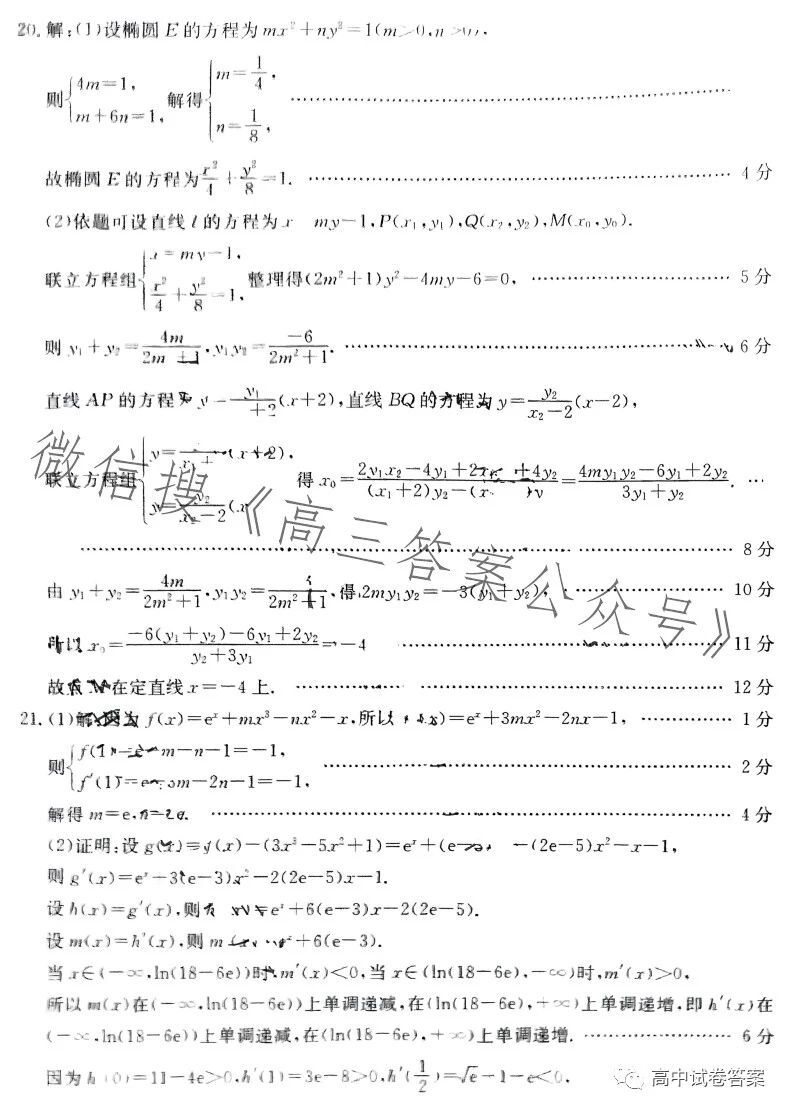 20. 解:(1)设椭圆 E 的方程为 mx²+ny²=1(m>0,n>0),
则{4m=1, m+6n=1, 解得{m=1/4, n=1/8,
故椭圆 E 的方程为 x²/4+y²/8=1. 4 分
(2)依题可设直线 l 的方程为 x my-1,P(x₁,y₁),Q(x₂,y₂),M(x₀,y₀).
联立方程组{x=my-1, x²/4+y²/8=1, 整理得(2m²+1)y²-4my-6=0, 5 分
则 y₁+y₂=4m/2m +1,y₁y₂=-6/2m²+1. 6 分
直线 AP 的方程 y y₁/ +2(x+2),直线 BQ 的方程为 y=y₂/x₂-2(x-2),
联立方程组{y= (x+2), y=y₂/x₂-2(x 得 x₀=2y₁x₂-4y₁+2 +4y₂/(x₁+2)y₂-(x y =4my₁y₂-6y₁+2y₂/3y₁+y₂. …
8 分
由 y₁+y₂=4m/2m²+1,y₁y₂= /2m²+1,得 2my₁y₂=-3(y₁+y₂), 10 分
所以 x₀=-6(y₁+y₂)-6y₁+2y₂/y₂+3y₁=-4 11 分
故 在定直线 x=-4 上. 12 分
21. (1)解:因为 f(x)=eˣ+mx³-nx²-x,所以 (x)=eˣ+3mx²-2nx-1, 1 分
则{f(1 m-n-1=-1, f′(1)=e m-2n-1=-1, 2 分
解得 m=e,n=2e. 4 分
(2)证明:设 g(x)=f(x)-(3x³-5x²+1)=eˣ+(e -(2e-5)x²-x-1,
则 g′(x)=eˣ 3(e-3)x²-2(2e-5)x-1.
设 h(x)=g′(x),则 eˣ+6(e-3)x-2(2e-5).
设 m(x)=h′(x),则 m +6(e-3).
当 x∈(-∞,ln(18-6e))时,m′(x)<0,当 x∈(ln(18-6e),-∞)时,m′(x)>0,
所以 m(x)在(-∞,ln(18-6e))上单调递减,在(ln(18-6e),+∞)上单调递增,即 h′(x)在
(-∞,ln(18-6e))上单调递减,在(ln(18-6e),+∞)上单调递增. 6 分
因为 h (0)=11-4e>0,h′(1)=3e-8>0,h′(1/2)=√e-1-e<0,
微信搜《高三答案公众号》
高中试卷答案